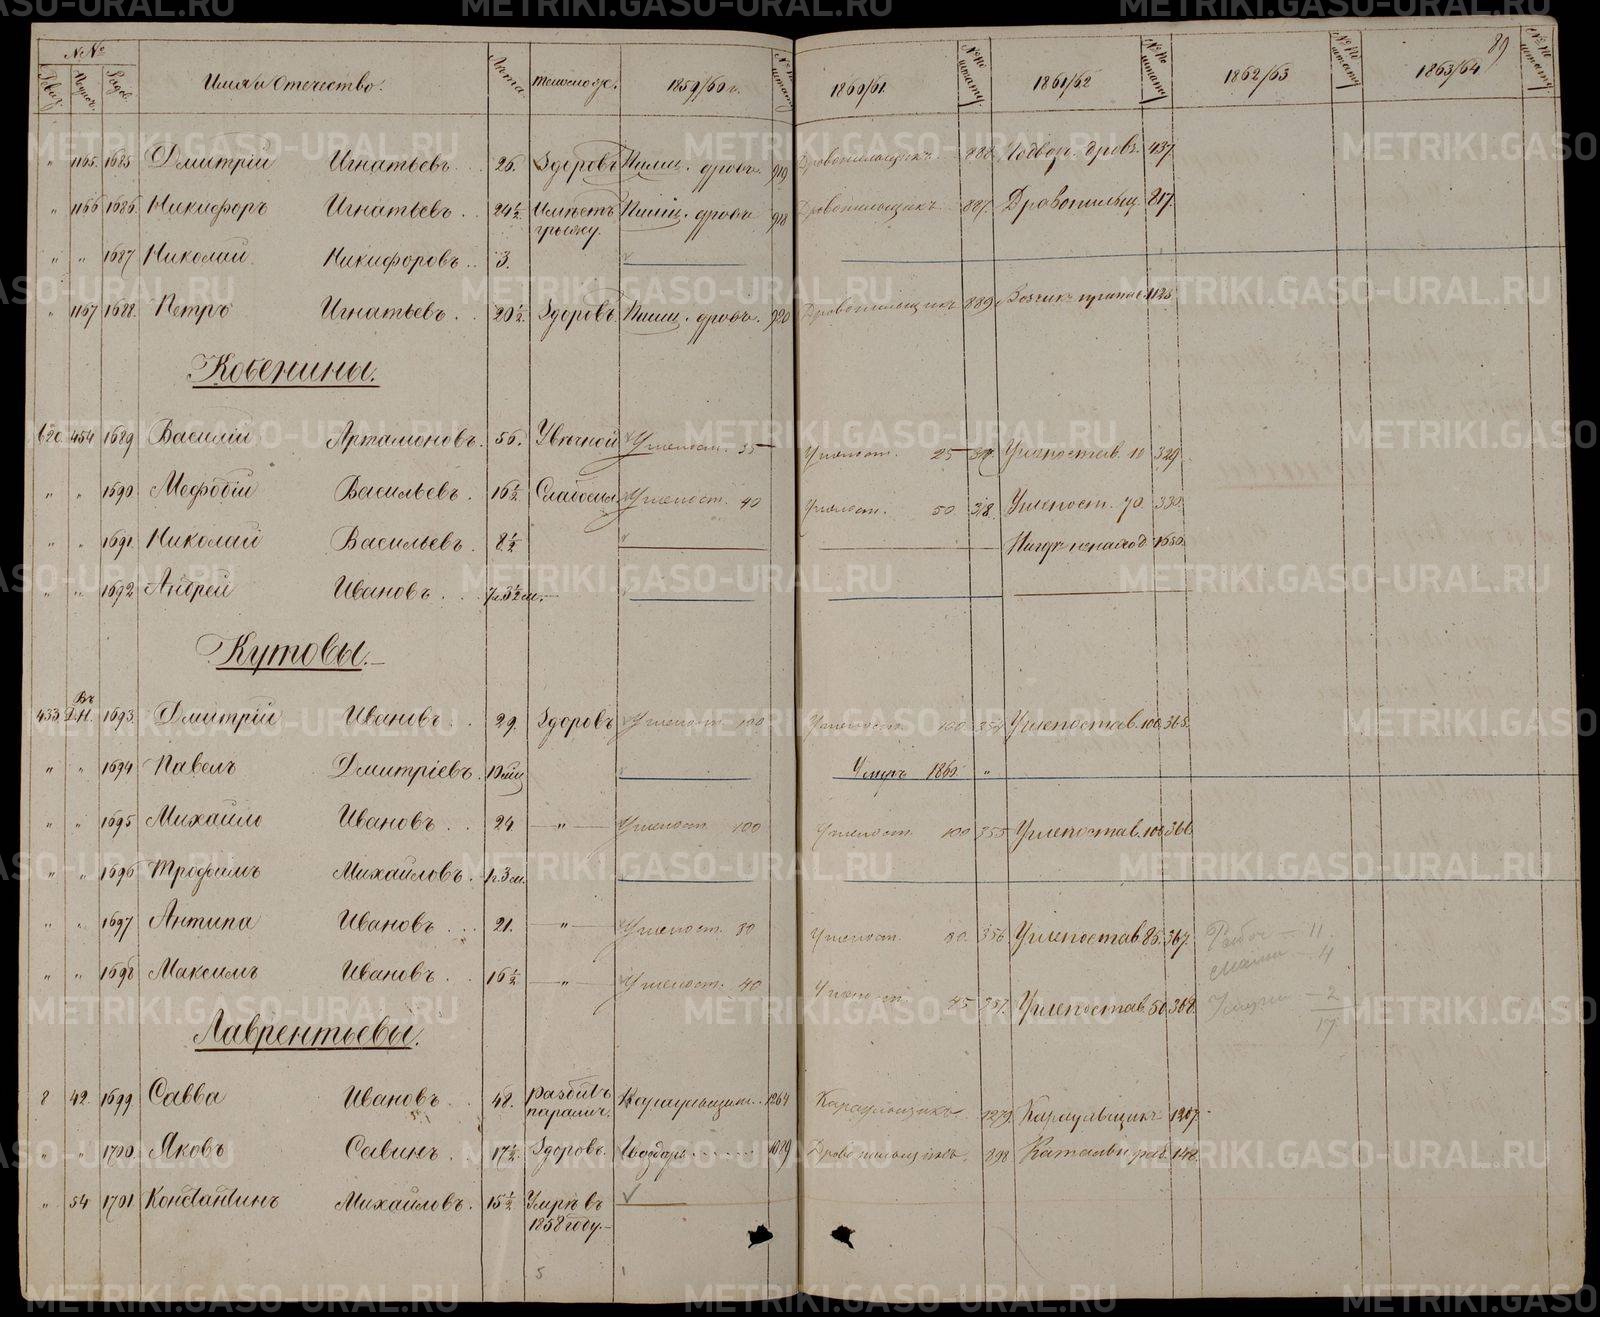 NNо
Имя и Отечество.
Лѣта.
Телослож.
1859/60 г.
1860/61.
1861/62
1862/63
1863/64
89
" 1165. 1685 Дмитрій Игнатьевъ. 26. Здоровъ Пилщ. дровъ. 919 Дровопильщикъ. 888 Подвоз. дровъ. 1137
" 1166 1686. Никифоръ Игнатьевъ. 24½ Имѣетъ грыжу. Пилщ. дровъ 918 Дровопильщикъ. 887. Дровопильщ. 817.
" " 1687 Николай Никифоровъ. 3.
" 1167 1688. Петръ Игнатьевъ. 20½ Здоровъ Пилщ. дровъ. 920 Дровопильщикъ 889 1125
Кобенины.
620 454 1689 Василій Артамоновъ. 56. Увѣчной Углепост. 35 Углепост. 25 Углепостав. 329
" " 1690 Мефодій Васильевъ. 16½ Слабосил Углепост. 40 Углепост. 50 318. Углепост. 70. 330.
" " 1691 Николай Васильевъ. 8½
" " 1692 Андрей Ивановъ.
Кутовы.
433 Въ Д.Н. 1693 Дмитрій Ивановъ. 29. Здоровъ Углепост. 100 Углепост. 100 354 Углепостав. 100. 365.
" " 1694 Павелъ Дмитріевъ. Умеръ 1860. "
" " 1695 Михайло Ивановъ. 24 " Углепост. 100 Углепост. 100 355 Углепостав. 100 366
" " 1696 Трофимъ Михайловъ. 1г. 3 м.
" " 1697 Антипа Ивановъ. 21. " Углепост. 80 Углепост. 80. 356 Углепостав. 85. 367. Рабоч — 11
" " 1698 Максимъ Ивановъ. 16½ " Углепост. 40 Углепост. 45 357. Углепостав. 50 368. — 4
— 2
17
Лаврентьевы.
8 42. 1699 Савва Ивановъ. 48. Разбитъ паралич. Караульщикъ. 1264 Караульщикъ. 1279. Караульщикъ 1207.
" " 1700. Яковъ Савинъ. 17½ Здоровъ. Гвоздарь 1089 Дровопильщикъ. 898 Катальн. раб. 148.
" 54 1701 Константинъ Михайловъ. 15½ Умре въ
1858 году.
METRIKI.GASO-URAL.RU